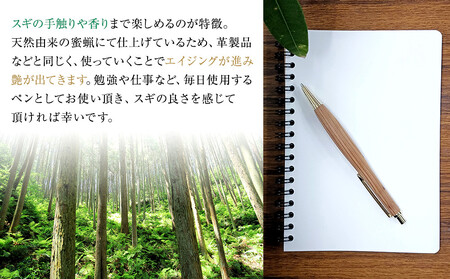 スギの手触りや香りまで楽しめるのが特徴。
天然由来の蜜蝋にて仕上げているため、革製品
などと同じく、使っていくことでエイジングが進み
艶が出てきます。勉強や仕事など、毎日使用する
ペンとしてお使い頂き、スギの良さを感じて
頂ければ幸いです。